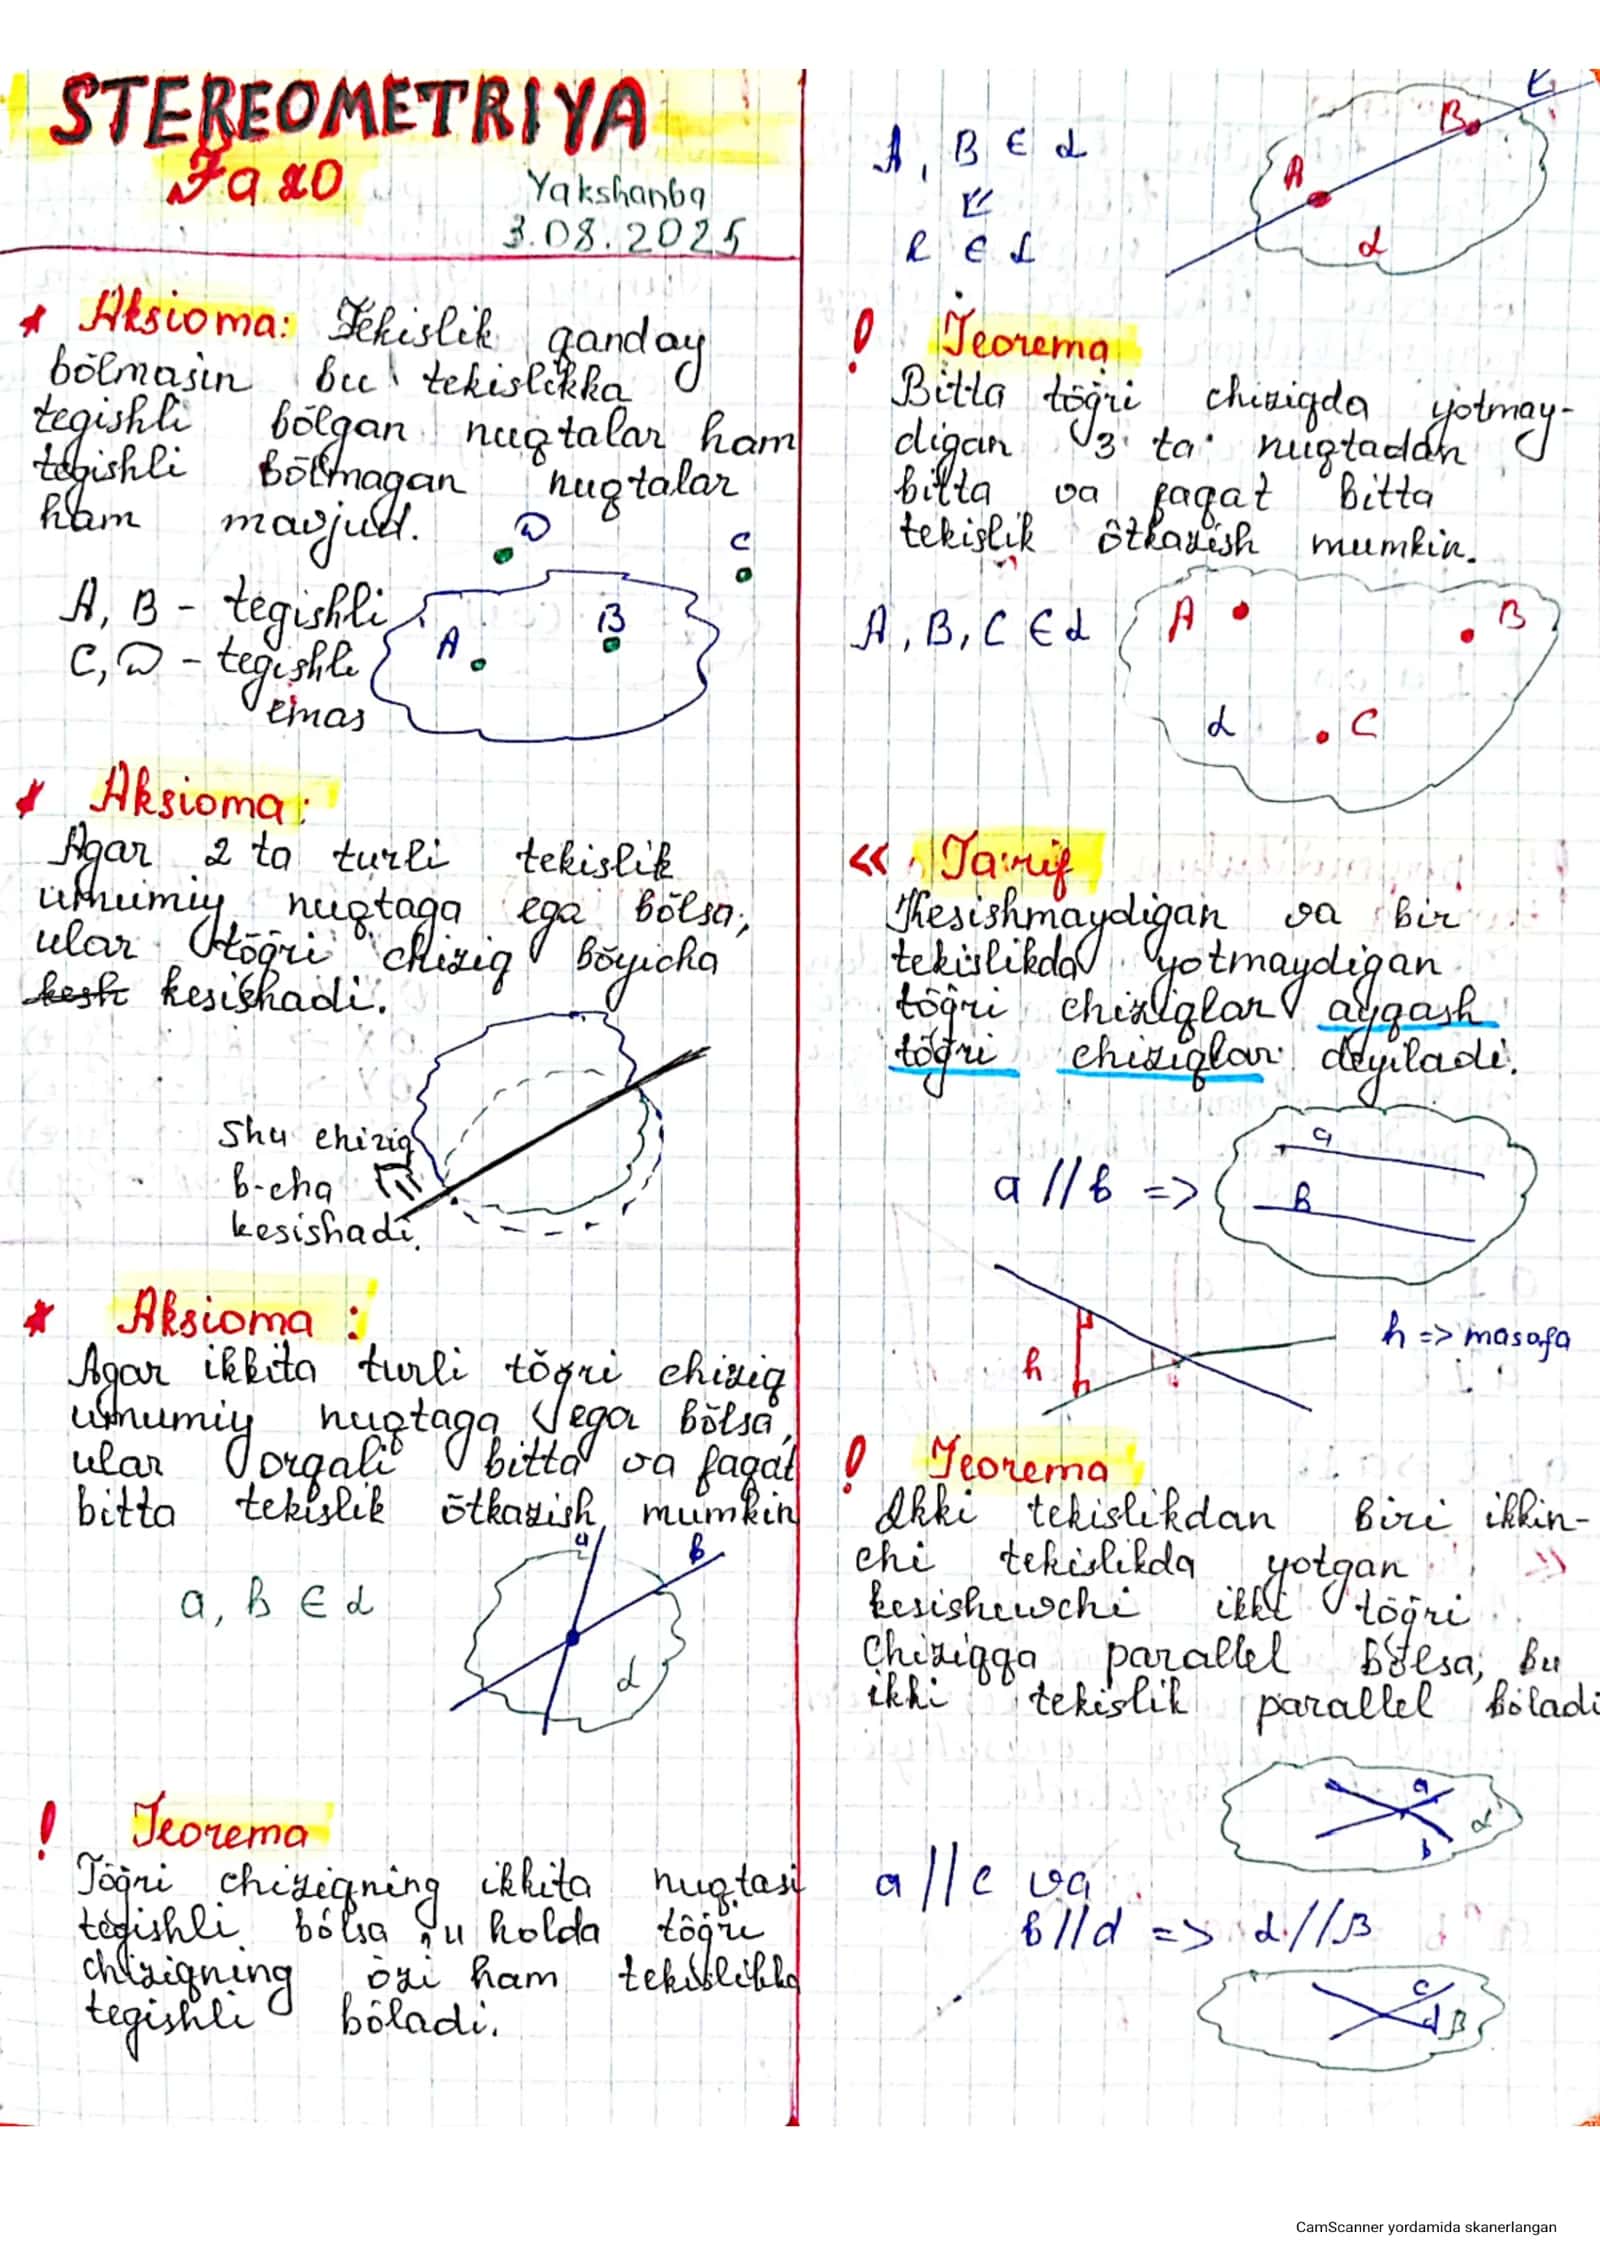 STEREOMETRIYA
Fazo
Yakshanba
3.08.2025
* Aksioma: Tekislik qanday
bõlmasin bu tekislikka
tegishli bõlgan nuqtalar ham
tegishli bõlmagan nuqtalar
ham mavjud.
D
C
A, B - tegishli
C, D - tegishli
emas
A
B
* Aksioma:
Agar 2 ta turli tekislik
umumiy nuqtaga ega bõlsa,
ular tõğri chiziq bõyicha
kesh kesishadi.
Shu chiziq
b-cha
kesishadi.
* Aksioma :
Agar ikkita turli tõğri chiziq
umumiy nuqtaga ega bõlsa,
ular orqali bitta va faqat
bitta tekislik õtkazish mumkin
a, b ∈ α
a
b
α
! Teorema
Tõğri chiziqning ikkita nuqtasi
tegishli bõlsa, u holda tõğri
chiziqning õzi ham tekislikka
tegishli bõladi.
A, B ∈ α
⇓
l ∈ α
A
B
l
α
! Teorema
Bitta tõğri chiziqda yotmay-
digan 3 ta nuqtadan
bitta va faqat bitta
tekislik õtkazish mumkin.
A, B, C ∈ α
A
B
α
C
<< Ta'rif
Kesishmaydigan va bir
tekislikda yotmaydigan
tõğri chiziqlar ayqash
tõğri chiziqlar deyiladi.
a // b =>
a
b
h
h => masofa
! Teorema
Ikki tekislikdan biri ikkin-
chi tekislikda yotgan
kesishuvchi ikki tõğri
chiziqqa parallel bõlsa, bu
ikki tekislik parallel bõladi
a
b
α
a//c va
b//d => α//β
c
d
β
CamScanner yordamida skanerlangan